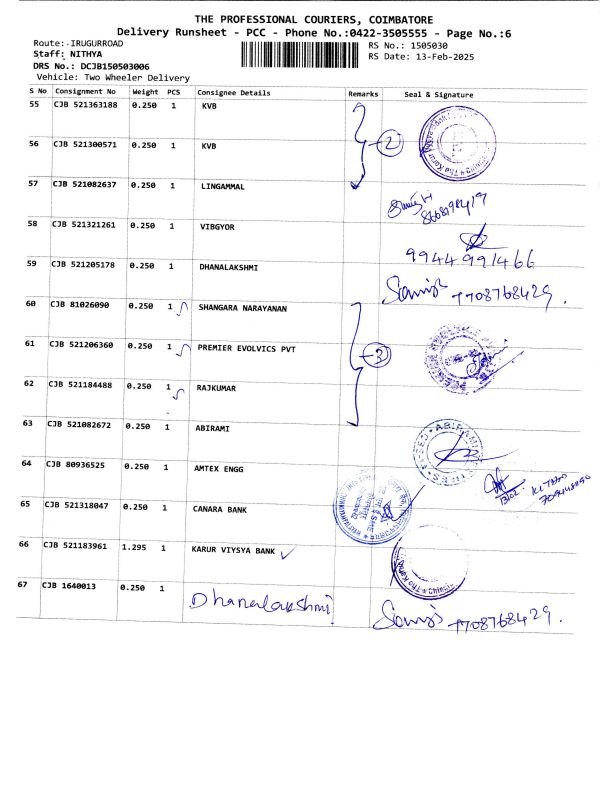 THE PROFESSIONAL COURIERS, COIMBATORE
Delivery Runsheet - PCC - Phone No.:0422-3505555 - Page No.:6
Route: IRUGURROAD RS No.: 1505030
Staff: NITHYA RS Date: 13-Feb-2025
DRS No.: DCJB150503006
Vehicle: Two Wheeler Delivery
S No Consignment No Weight PCS Consignee Details Remarks Seal & Signature
55 CJB 521363188 0.250 1 KVB
56 CJB 521300571 0.250 1 KVB 2
57 CJB 521082637 0.250 1 LINGAMMAL
58 CJB 521321261 0.250 1 VIBGYOR
59 CJB 521205178 0.250 1 DHANALAKSHMI 9944991466
7708768429.
60 CJB 81026090 0.250 1 SHANGARA NARAYANAN
61 CJB 521206360 0.250 1 PREMIER EVOLVICS PVT 3
62 CJB 521184488 0.250 1 RAJKUMAR
63 CJB 521082672 0.250 1 ABIRAMI ABIRAMI
64 CJB 80936525 0.250 1 AMTEX ENGG
65 CJB 521318047 0.250 1 CANARA BANK
66 CJB 521183961 1.295 1 KARUR VIYSYA BANK
67 CJB 1640013 0.250 1 Dhanalakshmi 7708768429.